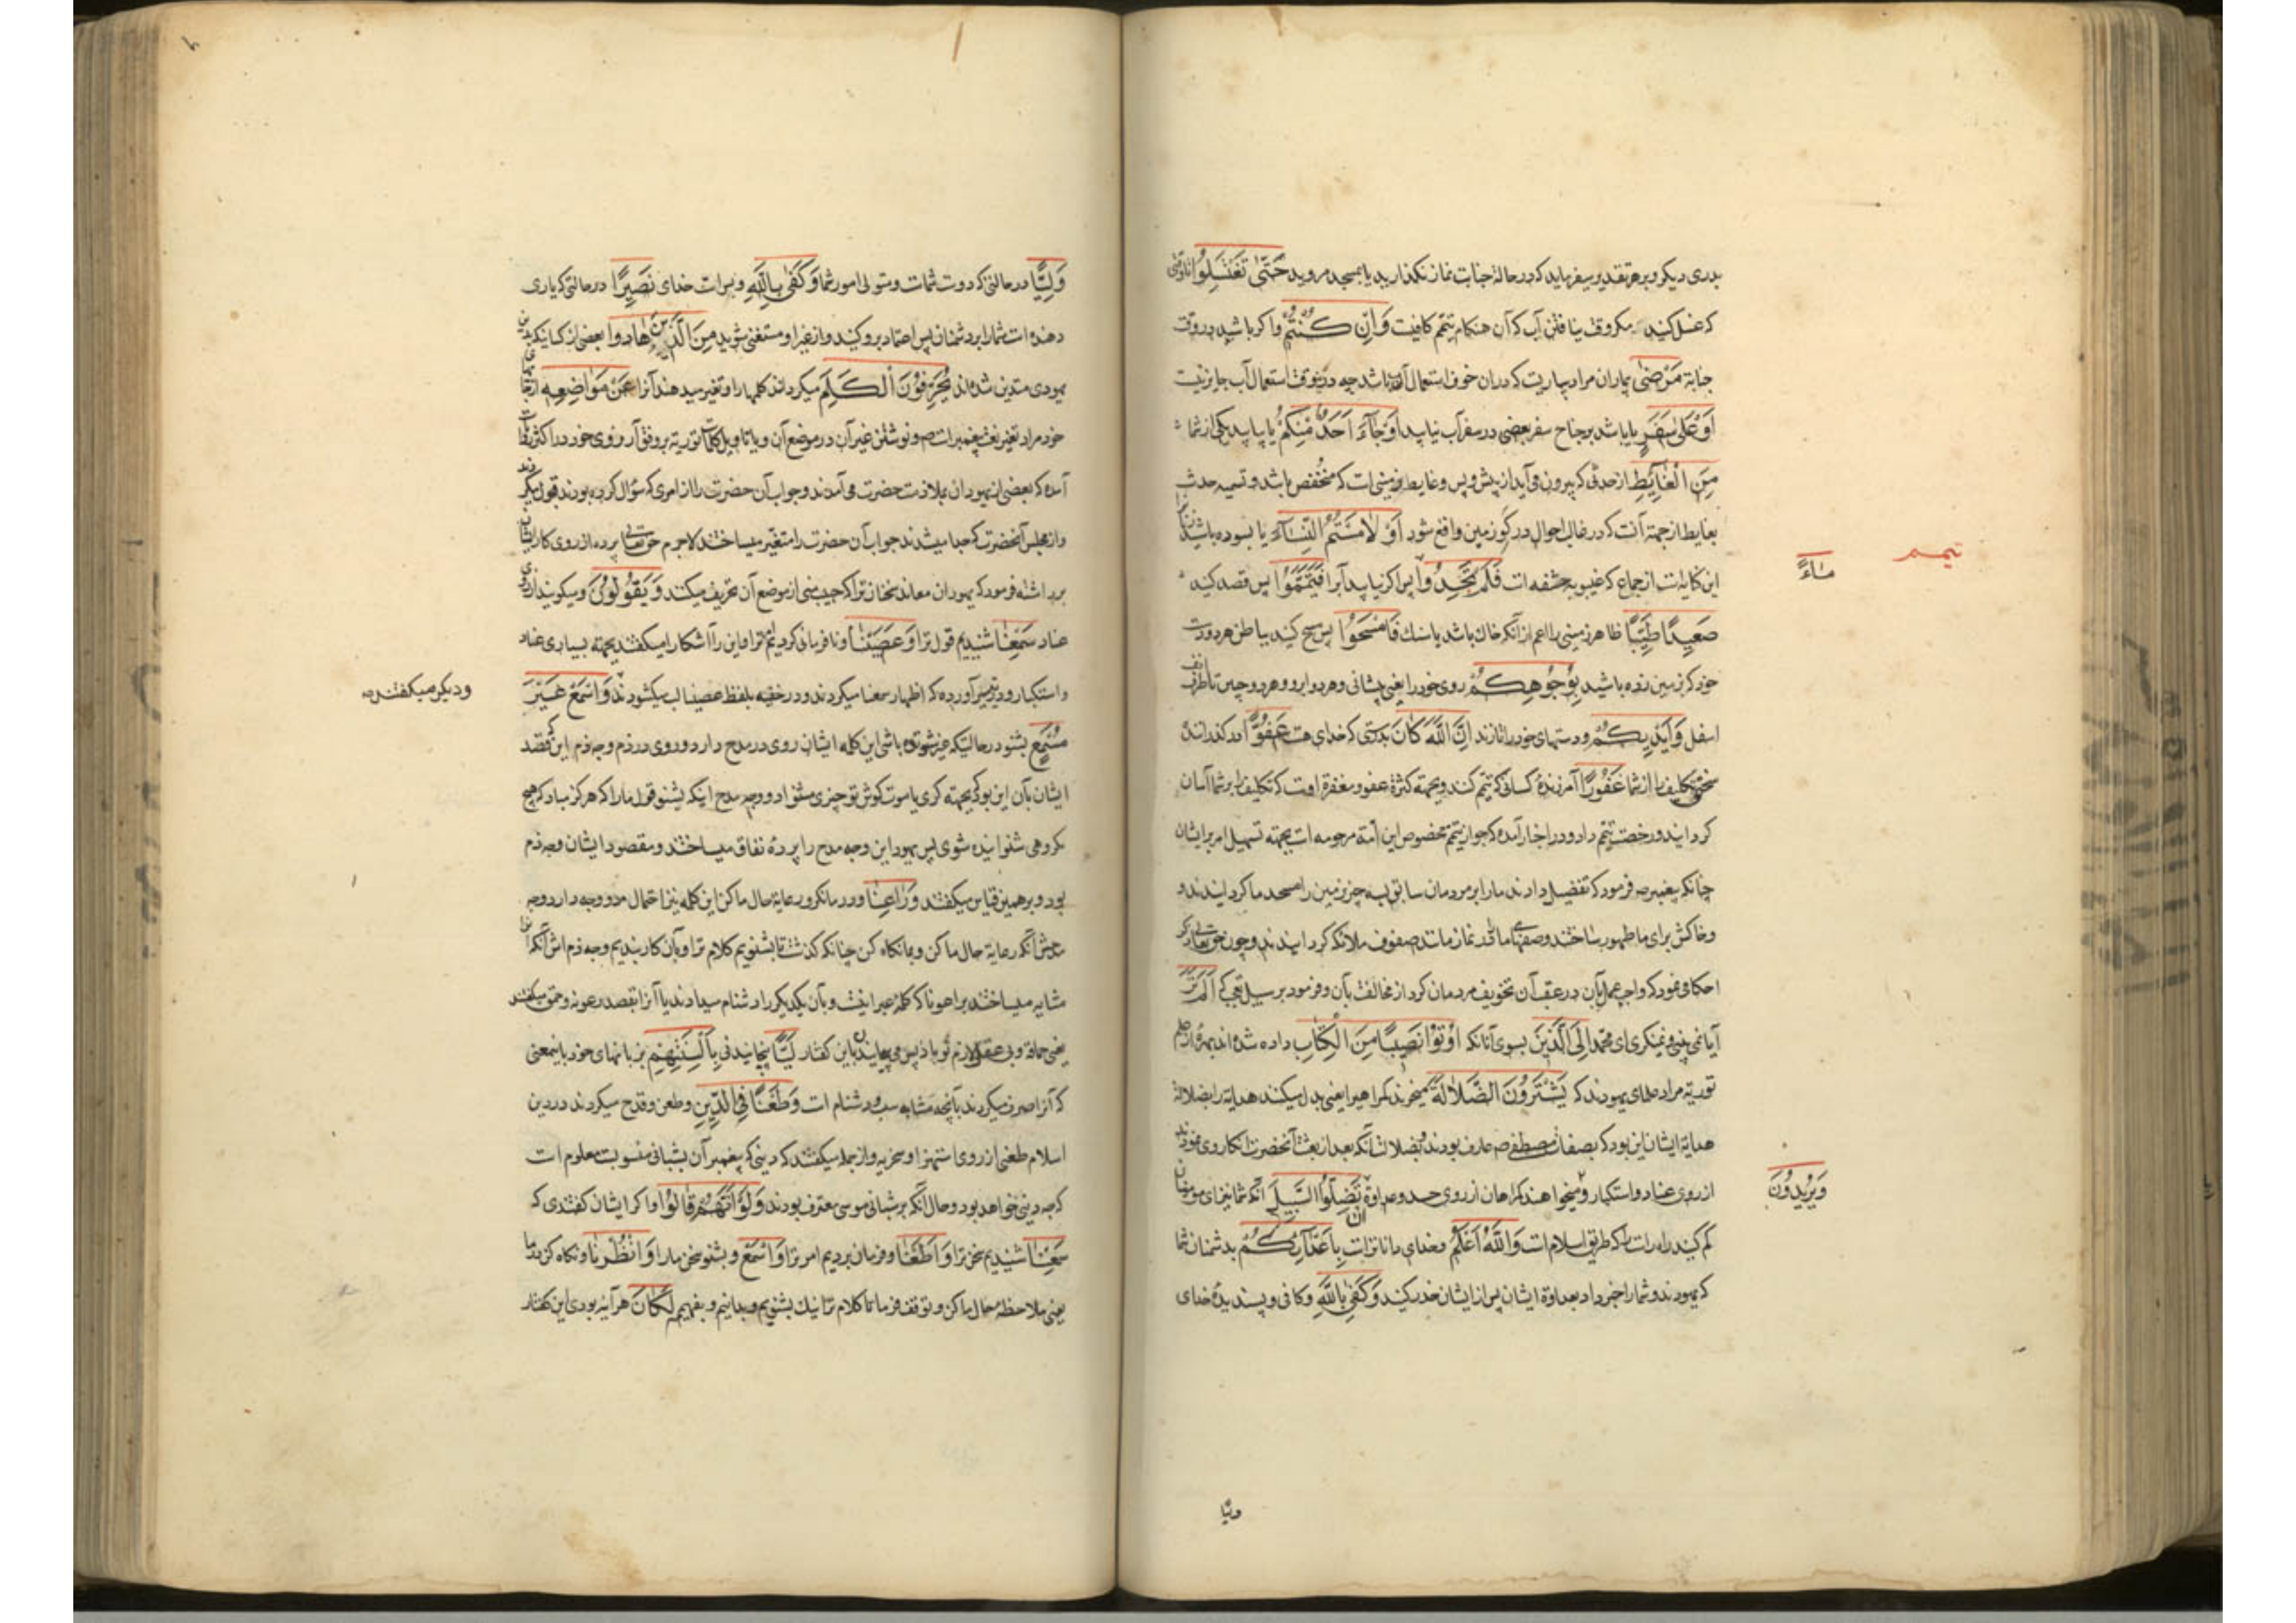 بدری دیکر و برهر تقدیر میفرماید که در حالة جنابت نماز نکذارید یا بمسجد مروید حَتّیٰ تَغْتَسِلُوا تا وقتی
که غسل کنید مکر وقت نیافتن آب که آن هنکام تیمّم کافیست وَاِنْ کُنْتُمْ و اکر باشید در وقت
جنابة مَرْضیٰ بیماران مراد بیماریست که دران خوف استعمال آب باشد چه درینوقت استعمال آب جایز نیست
اَوْ عَلیٰ سَفَرٍ یا باشد بر جناح سفر بعضی در سفر آب نیابید اَوْ جَآءَ اَحَدٌ مِنْکُمْ یا بیاید یکی از شما
مِنَ الْغَآئِطِ از حدثی که بیرون می‌آید از پیش و پس و غایط زمینی است که منخفض باشد و تسمیه حدث
بغایط از جهة آنست که در غالب احوال در کو زمین واقع شود اَوْ لٰامَسْتُمُ النِّسٰآءَ یا بسوده باشید زنانرا
این کنایه است از جماع که غیبوبه حشفه است فَلَمْ تَجِدُوا پس اکر نیابید آبرا فَتَیَمَّمُوا پس قصد کنید
مٰآءً
تیمم
صَعِیدًا طَیِّبًا ظاهر زمینی را اعم از آنکه خاک باشد یا سنک فَامْسَحُوا پس مسح کنید بباطن هر دو دست
خود که بر زمین زده باشید بِوُجُوهِکُمْ روی خود را یعنی پیشانی و هر دو ابرو و هر دو جبین تا طرف انف
اسفل وَاَیْدِیکُمْ و دستهای خود را تا زند اِنَّ اللّٰهَ کَانَ بدرستی که خدای هست عَفُوًّا در کذراننده
سختی تکلیف را از شما غَفُورًا آمرزنده کسانی که تیمّم کنند و بجهته کثرة عفو و مغفرة اوست که تکلیف را بر شما آسان
کردانید و رخصت تیمّم داد و در اخبار آمده که جواز تیمّم مخصوص این امّة مرحومه است بجهته تسهیل امر بر ایشان
چنانکه پیغمبر ص فرمود که تفضیل دادند مارا بر مردمان سابق بسه چیز زمین را مسجد ما کردانیدند و
و خاکش برای ما طهور ساختند و صفهای مارا در نماز مانند صفوف ملائکه کردانیدند و چون حق تعالی ذکر
احکامی نمود که واجبست عمل بآن در عقب آن تخویف مردمان کرد از مخالفت بآن و فرمود بر سبیل تعجّب که اَلَمْ تَرَ
آیا نمی بینی و نمینکری ای محمّد اِلَی الَّذِینَ بسوی آنانکه اُوتُوا نَصِیبًا مِنَ الْکِتٰابِ داده شده‌اند بهره از علم
توریة مراد علمای یهودند که یَشْتَرُونَ الضَّلٰالَةَ میخرند کمراهیرا یعنی بدل میکنند هدایة را بضلالة
هدایة ایشان این بود که بصفات مصطفی ص عارف بودند و ضلالت آنکه بعد از بعثت آنحضرت انکار وی نمودند
از روی عناد و استکبار و میخواهند کمراهان از روی حسد و عداوة اَنْ تَضِلُّوا السَّبِیلَ آنکه شما نیز ای مؤمنان
وَیُرِیدُونَ
کم کنید راه راست را که طریق اسلام است وَاللّٰهُ اَعْلَمُ و خدای داناتراست بِاَعْدٰآئِکُمْ بدشمنان شما
که یهودند و شمارا خبر داد بعداوة ایشان پس از ایشان حذر کنید وَکَفیٰ بِاللّٰهِ و کافی و پسندیده خدای
ولیًّا
وَلِیًّا در حالتی که دوست شماست و متولی امور شما وَکَفیٰ بِاللّٰهِ و بس است خدای نَصِیرًا در حالتی که یاری
دهنده است شمارا بر دشمنان پس اعتماد برو کنید و از غیر او مستغنی شوید مِنَ الَّذِینَ هٰادُوا بعضی از کسانیکه بدین
یهودی متدین شده‌اند یُحَرِّفُونَ الْکَلِمَ میکردانند کلمها را و تغییر میدهند آنرا عَنْ مَوٰاضِعِهِ از جاهای
خود مراد تغییر نعت پیغمبر است ص و نوشتن غیر آن در موضع آن و یا تاویل کلمات توریة بر وفق آرزوی خود در اکثر روایات
آمده که بعضی از یهودان بملازمت حضرت می‌آمدند و جواب آن حضرت را از امری که سؤال کرده بودند قبول میکردند
و از مجلس آنحضرت که جدا میشدند جواب آن حضرت را متغیّر میساختند لاجرم حق تعالی پرده از روی کار ایشان
برداشته فرمود که یهودان معاند سخنان ترا که حبیب منی از موضع آن تحریف میکنند وَیَقُولُونَ و میکویند از روی
عناد سَمِعْنٰا شنیدیم قول ترا وَعَصَیْنٰا و نافرمانی کردیم ترا و این را آشکارا میکفتند بجهته بسیاری عناد
و استکبار و در تفسیر آورده که اظهار سمعنا میکردند و در خفیه بلفظ عصینا لب میکشودند وَاسْمَعْ غَیْرَ
و دیکر میکفتند ص
مُسْمَعٍ بشنو در حالتیکه غیر شنونده باشی این کلمه ایشان روی در مدح دارد و روی در ذم وجه ذم این که قصد
ایشان بآن این بود که بجهته کری یا موت کوش تو چیزی مشنواد و وجه مدح اینکه بشنو قول مارا که هرکز مباد که هیچ
مکروهی شنوانیده شوی پس یهود این وجه مدح را پردهٔ نفاق میساختند و مقصود ایشان وجه ذم
بود و برهمین قیاس میکفتند وَرٰاعِنٰا و در ما نکر و رعایة حال ما کن این کلمه نیز احتمال مدح و وجه دارد وجه
مدحش آنکه رعایة حال ما کن و بما نکاه کن چنانکه کذشت تا بشنویم کلام ترا و بآن کار بندیم وجه ذم اش آنکه آنرا
مشابه میساختند براعونا که کلمه عبرانیست و بآن یکدیکر را دشنام میدادند یا آنرا بقصد رعونه و حمق میکفتند
یعنی حماقة و بی عقلی لازم تو باد پس می‌پیچانیدند باین کفتار لَیًّا پیچانیدنی بِاَلْسِنَتِهِمْ بزبانهای خود باینمعنی
که آنرا صرف میکردند بآنچه مشابه سب و دشنام است وَطَعْنًا فِی الدِّینِ و طعن و قدح میکردند در دین
اسلام طعنی از روی استهزا و سخریه و از جمله میکفتند که دینی که پیغمبر آن بشبانی منسوبست معلوم است
که چه دینی خواهد بود و حال آنکه بر شبانی موسی معترف بودند وَلَوْ اَنَّهُمْ قٰالُوا و اکر ایشان کفتندی که
سَمِعْنٰا شنیدیم سخن ترا وَاَطَعْنٰا و فرمان بردیم امر ترا وَاسْمَعْ و بشنو سخن مارا وَانْظُرْنٰا و نکاه کن بما
یعنی ملاحظه حال ما کن و توقف فرما تا کلام ترا نیک بشنویم و بدانیم و بفهمیم لَکٰانَ هر آینه بودی این کفتار